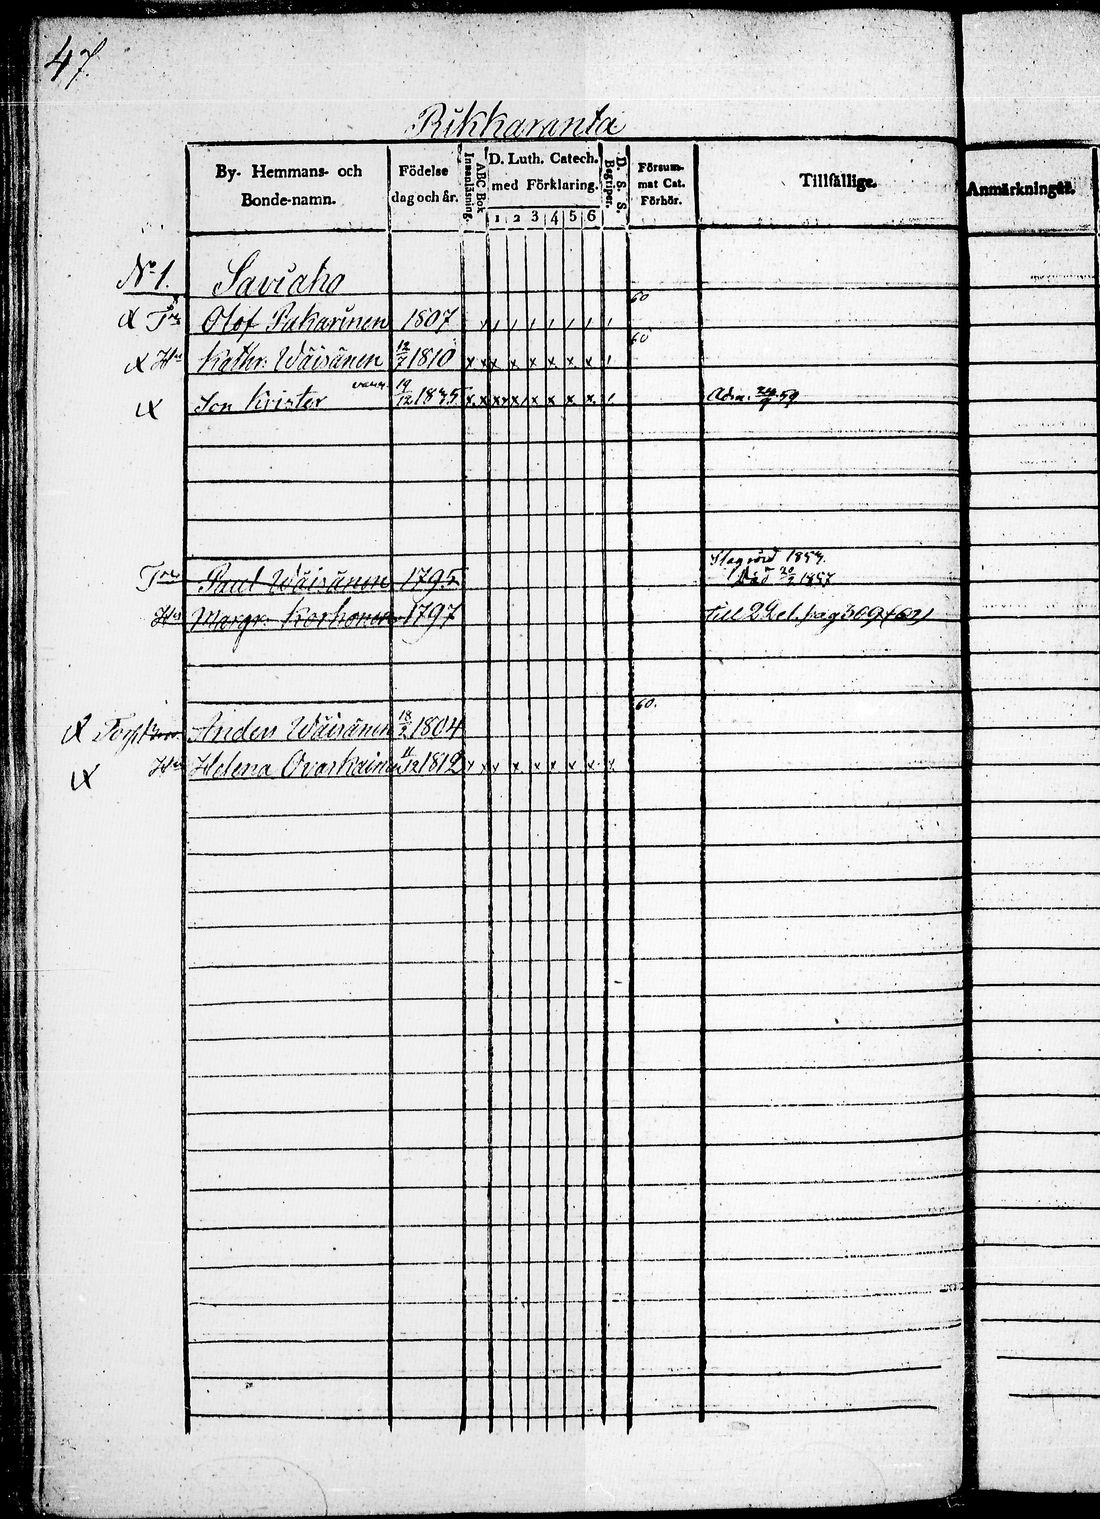 47.
Rikkaranta
By- Hemmans- och Bonde-namn.
Födelse dag och år.
ABC Bok Innanläsning.
D. Luth. Catech. med Förklaring.
1 2 3 4 5 6
D. S. S. Begriper.
Försum- mat Cat. Förhör.
Tillfällige.
Anmärkningar.
No 1. Saviaho
60
Olof Pakarinen 1807
60
Hu Kathr. Wäisänen 12/7 1810 x x x x x x x x
Son Krister 19/12 1835 x x x x x x x x Adm. 24/9 59
Paul Wäisänen 1795 1857
Hu Margr. Korhonen 1797 Till 2 Del. pag 369
60.
Torp Anders Wäisänen 18/9 1804
Hu Helena Ovaskainen 11/12 1812 x x x x x x x x